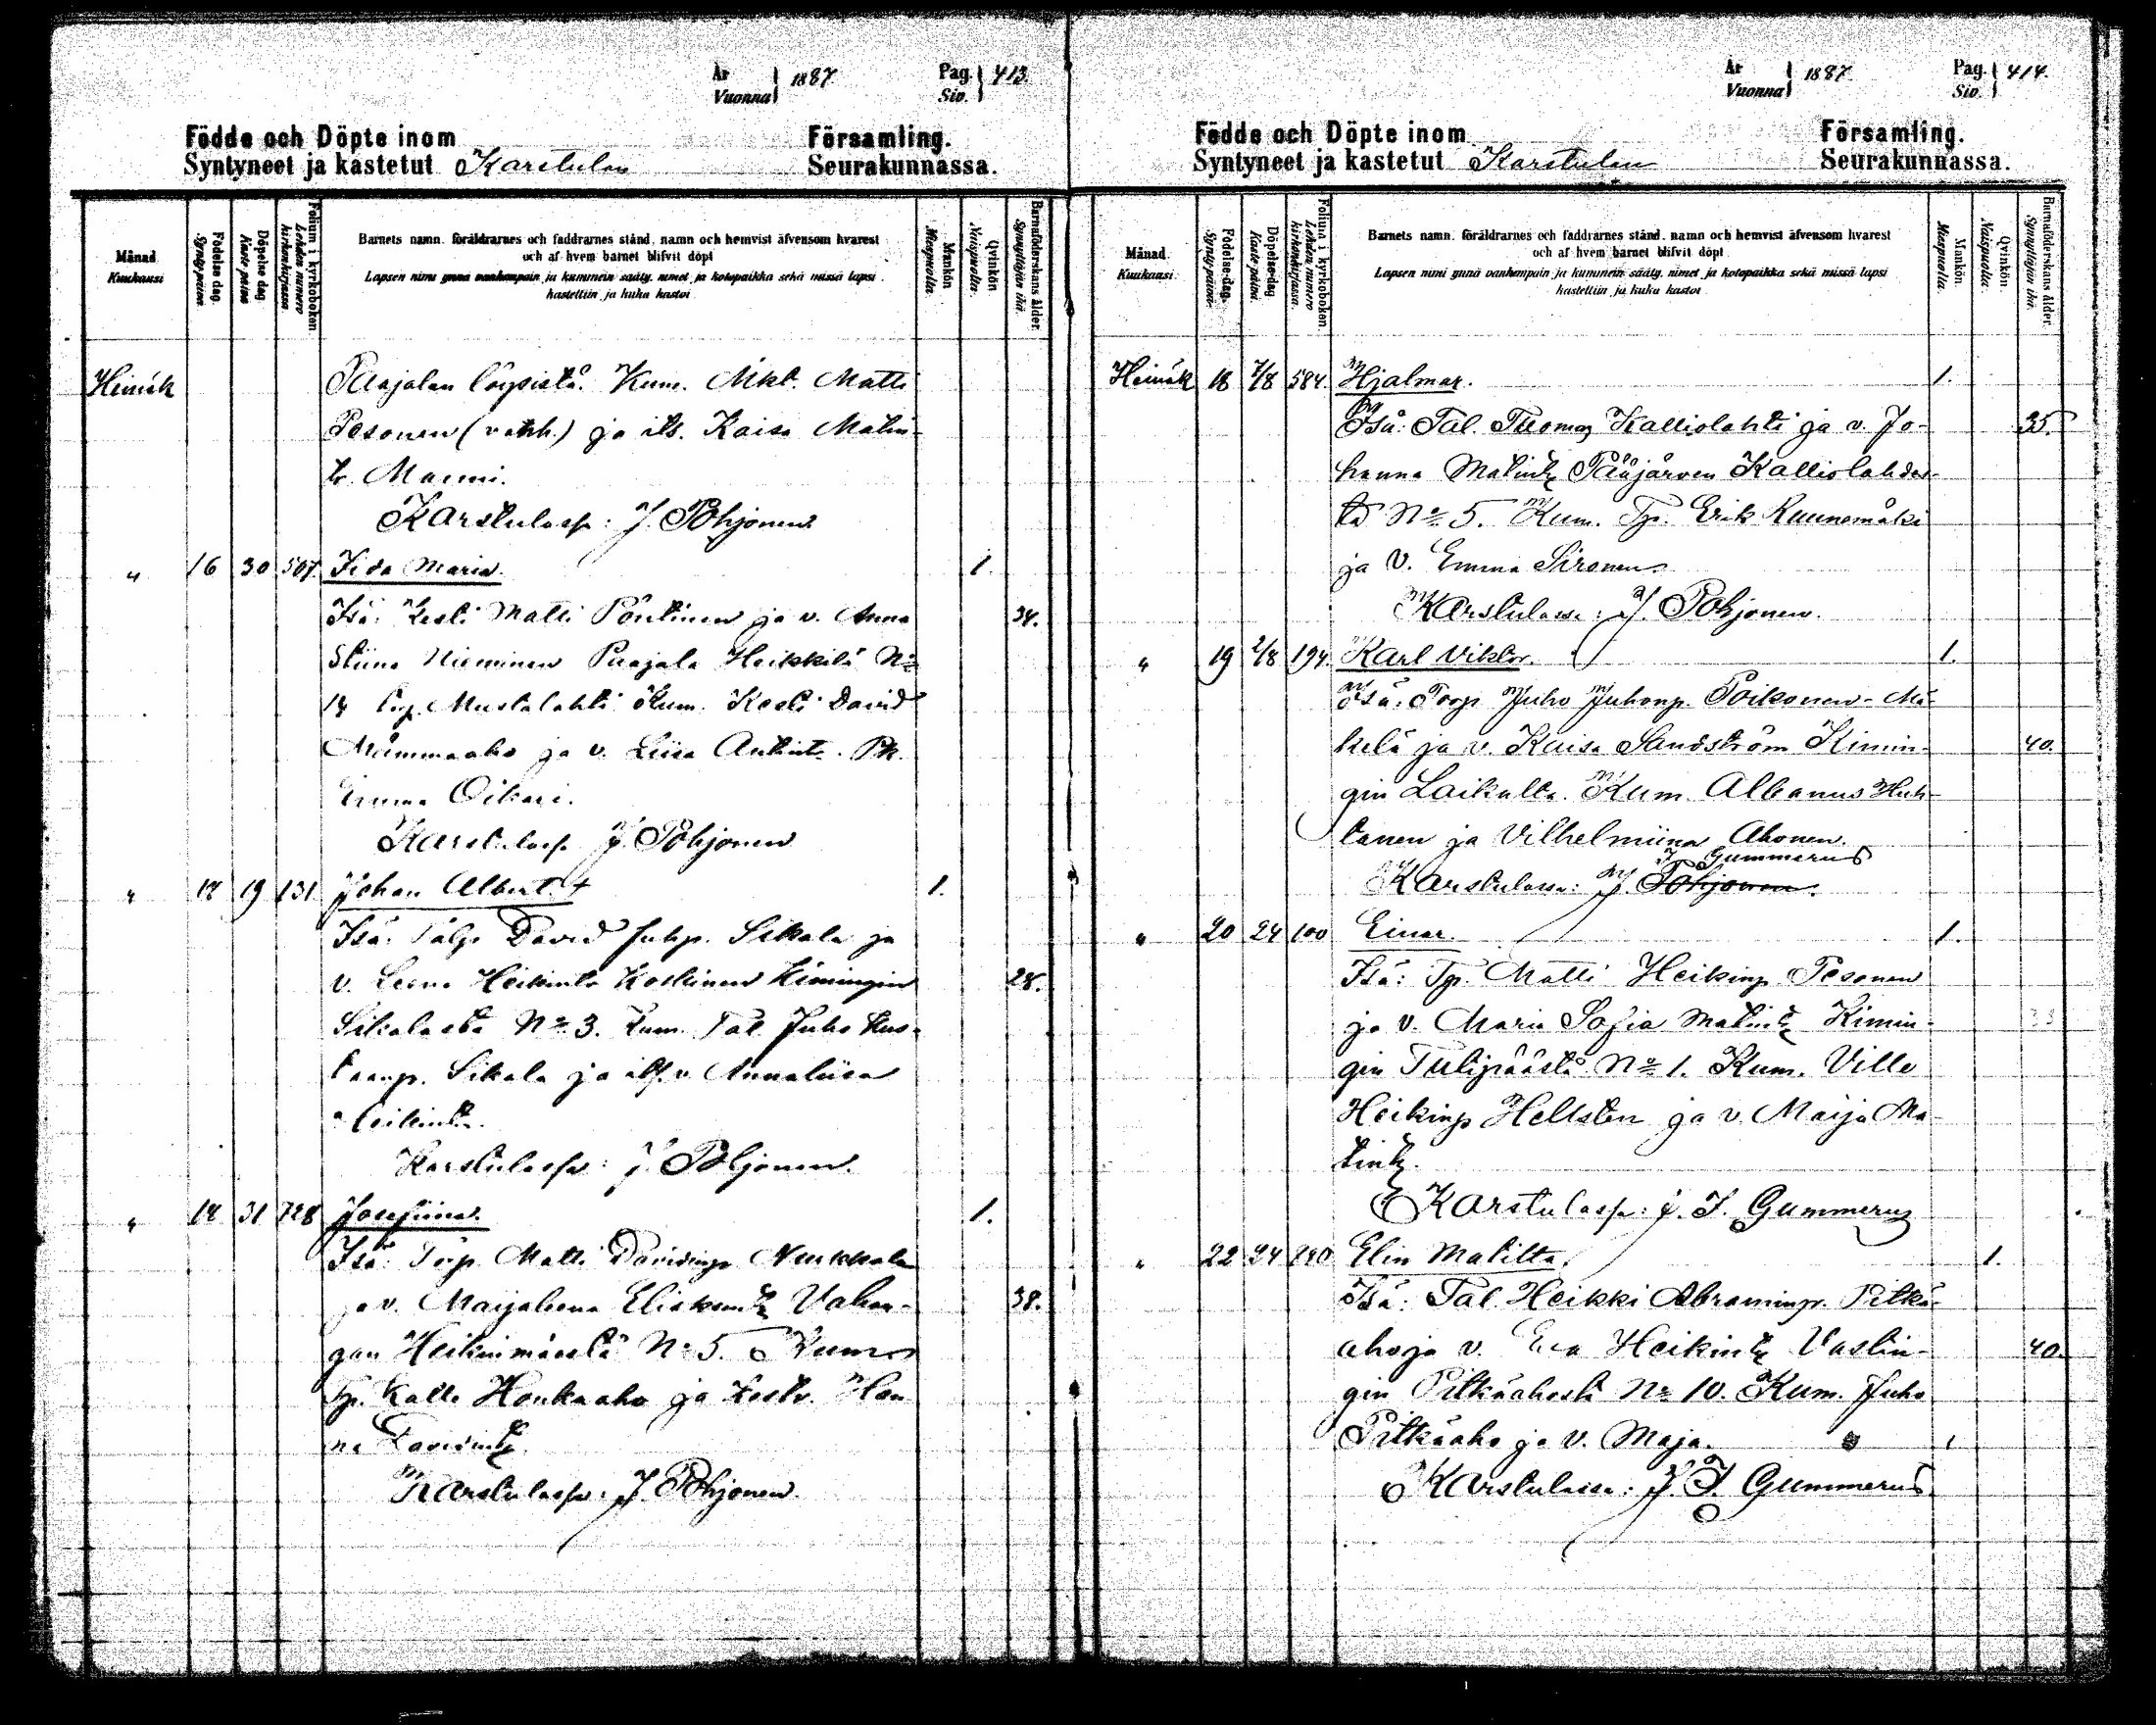 År
Vuonna
1887
Pag. 413.
Siv.
Födde och Döpte inom Församling.
Syntyneet ja kastetut Karstulan Seurakunnassa.
Månad
Kuukausi
Födelse dag.
Synty-päivä.
Döpelse dag
Kaste päivä
Folium i kyrkoboken.
Lehden numero kirkonkirjassa
Barnets namn, föräldrarnes och faddrarnes stånd, namn och hemvist äfvensom hvarest
och af hvem barnet blifvit döpt
Lapsen nimi ynnä vanhempain ja kummein sääty, nimet ja kotopaikka sekä missä lapsi
kastettiin ja kuka kastoi
Mankön
Miespuolia.
Qvinkön
Naispuolia.
Barnaföderskans ålder.
Synnyttäjän ikä.
Heinäk Paajalan löysistä. Kum. Mkt. Matti
Pesonen (vanh.) ja its. Kaisa Matin-
tr. Manni.
Karstulassa: J. Pohjonen
" 16 30 507. Iida Maria. 1.
Isä: Kesti Matti Pöntinen ja v. Anna 34.
Stiina Nieminen Paajala Heikkilä No
14 Mustalahti Kum. Kesti David
Mummaaho ja v. Liisa Antint. Ph.
Emma Oikari.
Karstulassa J. Pohjonen
" 17 19 131 Johan Albert + 1.
Isä: Talp. David Juhp. Sikala ja
v. Leena Heikintr Koskinen Kimingin 28.
Sikalasta No 3. Kum. Tal. Juho Kus-
taanp. Sikala ja v. Annaliisa
Heikintr.
Karstulassa: J. Pohjonen.
" 18 31 728 Josefiina. 1.
Isä: Torp. Matti Davidinp Nurkkala
ja v. Maijaleena Eliaksentr Vahan- 38.
gan Heikinmäestä No 5. Kum.
Tp. Kalle Honkaaho ja Kestv. Han-
na Davidintr.
Karstulassa: J. Pohjonen.
År
Vuonna
1887.
Pag. 414.
Siv.
Födde och Döpte inom Församling.
Syntyneet ja kastetut Karstulan Seurakunnassa.
Månad
Kuukausi.
Födelse-dag.
Synty-päivä
Döpelse-dag
Kaste-päivä.
Folium i kyrkoboken.
Lehden numero kirkonkirjassa.
Barnets namn, föräldrarnes och faddrarnes stånd, namn och hemvist äfvensom hvarest
och af hvem barnet blifvit döpt
Lapsen nimi ynnä vanhempain ja kummein sääty, nimet ja kotopaikka sekä missä lapsi
kastettiin ja kuka kastoi
Mankön.
Miespuolia.
Qvinkön
Naispuolia.
Barnaföderskans ålder.
Synnyttäjän ikä.
Heinäk 18 7/8 584. Hjalmar. 1.
Isä: Tal. Tuomas Kalliolahti ja v. Jo- 35.
hanna Matintr Pääjärven Kalliolahdes-
ta No 5. Kum. Tp. Erik Ruunamäki
ja v. Emma Sironen.
Karstulassa: J. Pohjonen.
" 19 2/8 194. Karl Viktor. 1.
Isä: Torp Juho Juhonp. Poikonen-Mä-
kelä ja v. Kaisa Sandström Kimin- 40.
gin Laikulta. Kum. Albanus Huh-
tanen ja Vilhelmiina Ahonen.
J. Gummerus
Karstulassa: J. Pohjonen.
" 20 24 100 Einar. 1.
Isä: Tp. Matti Heikinp Pesonen
ja v. Maria Sofia Matintr Kimin- 33
gin Tulipäästä No 1. Kum. Ville
Heikinp Hellsten ja v. Maija Ma-
tintr.
Karstulassa: J. J. Gummerus
" 22 24 Elin Matilta. 1.
Isä: Tal. Heikki Abraminp. Pitkä-
aho ja v. Eva Heikintr Vastin- 40.
gin Pitkäahosta No 10. Kum. Juho
Pitkäaho ja v. Maja. "
Karstulassa: J. J. Gummerus